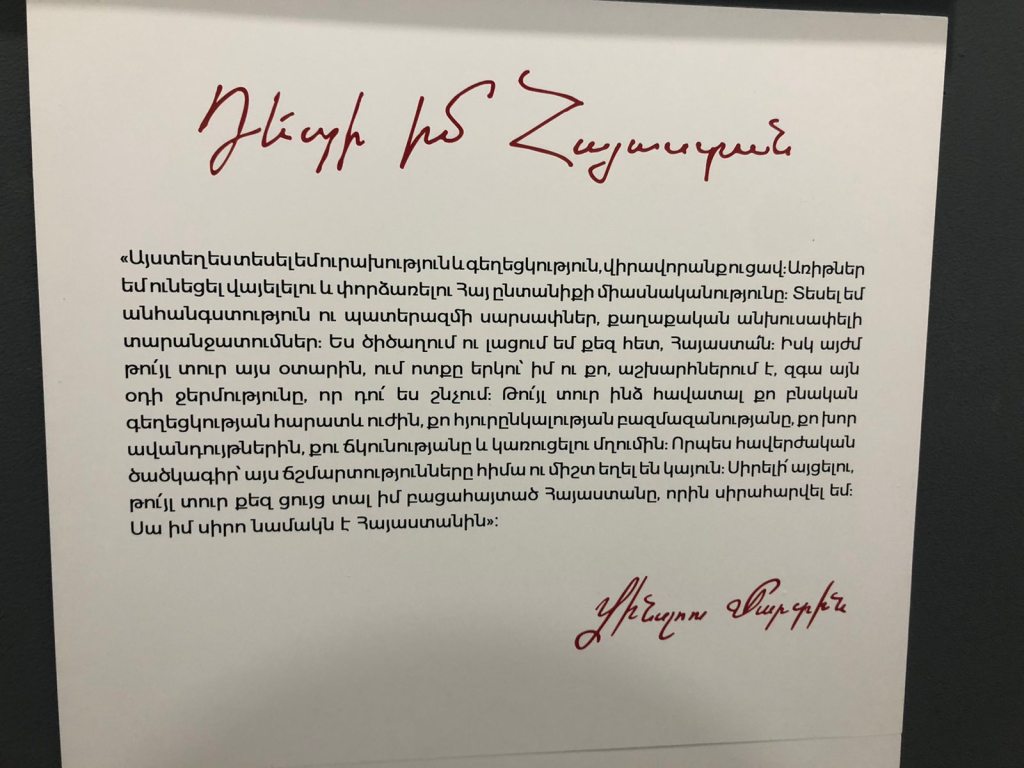 Դեպի իմ Հայաստան
«Այստեղ ես տեսել եմ ուրախություն և գեղեցկություն, վիրավորանք ու ցավ: Առիթներ
եմ ունեցել վայելելու և փորձառելու Հայ ընտանիքի միասնականությունը: Տեսել եմ
անհանգստություն ու պատերազմի սարսափներ, քաղաքական անխուսափելի
տարանջատումներ: Ես ծիծաղում ու լացում եմ քեզ հետ, Հայաստա՛ն: Իսկ այժմ
թո՛ւյլ տուր այս օտարին, ում ոտքը երկու՝ իմ ու քո, աշխարհներում է, զգա այն
օդի ջերմությունը, որ դու՛ ես շնչում: Թո՛ւյլ տուր ինձ հավատալ քո բնական
գեղեցկության հարատև ուժին, քո հյուրընկալության բազմազանությանը, քո խոր
ավանդույթներին, քու ճկունությանը և կառուցելու մղումին: Որպես հավերժական
ծածկագիր՝ այս ճշմարտությունները հիմա ու միշտ եղել են կայուն: Սիրելի՛ այցելու,
թո՛ւյլ տուր քեզ ցույց տալ իմ բացահայտած Հայաստանը, որին սիրահարվել եմ:
Սա իմ սիրո նամակն է Հայաստանին»:
Մարտին